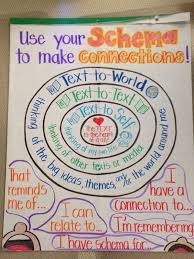 Use your Schema
to make connections!
Text-to-World
thinking of the big ideas, themes, and/or the world around me
Text-to-Text
thinking of other texts or media
Text-to-Self
thinking of my own life
The TEXT
is the heart
That
reminds
me of...
I
have a
connection to...
I can
relate to...
I'm remembering
I have schema for...